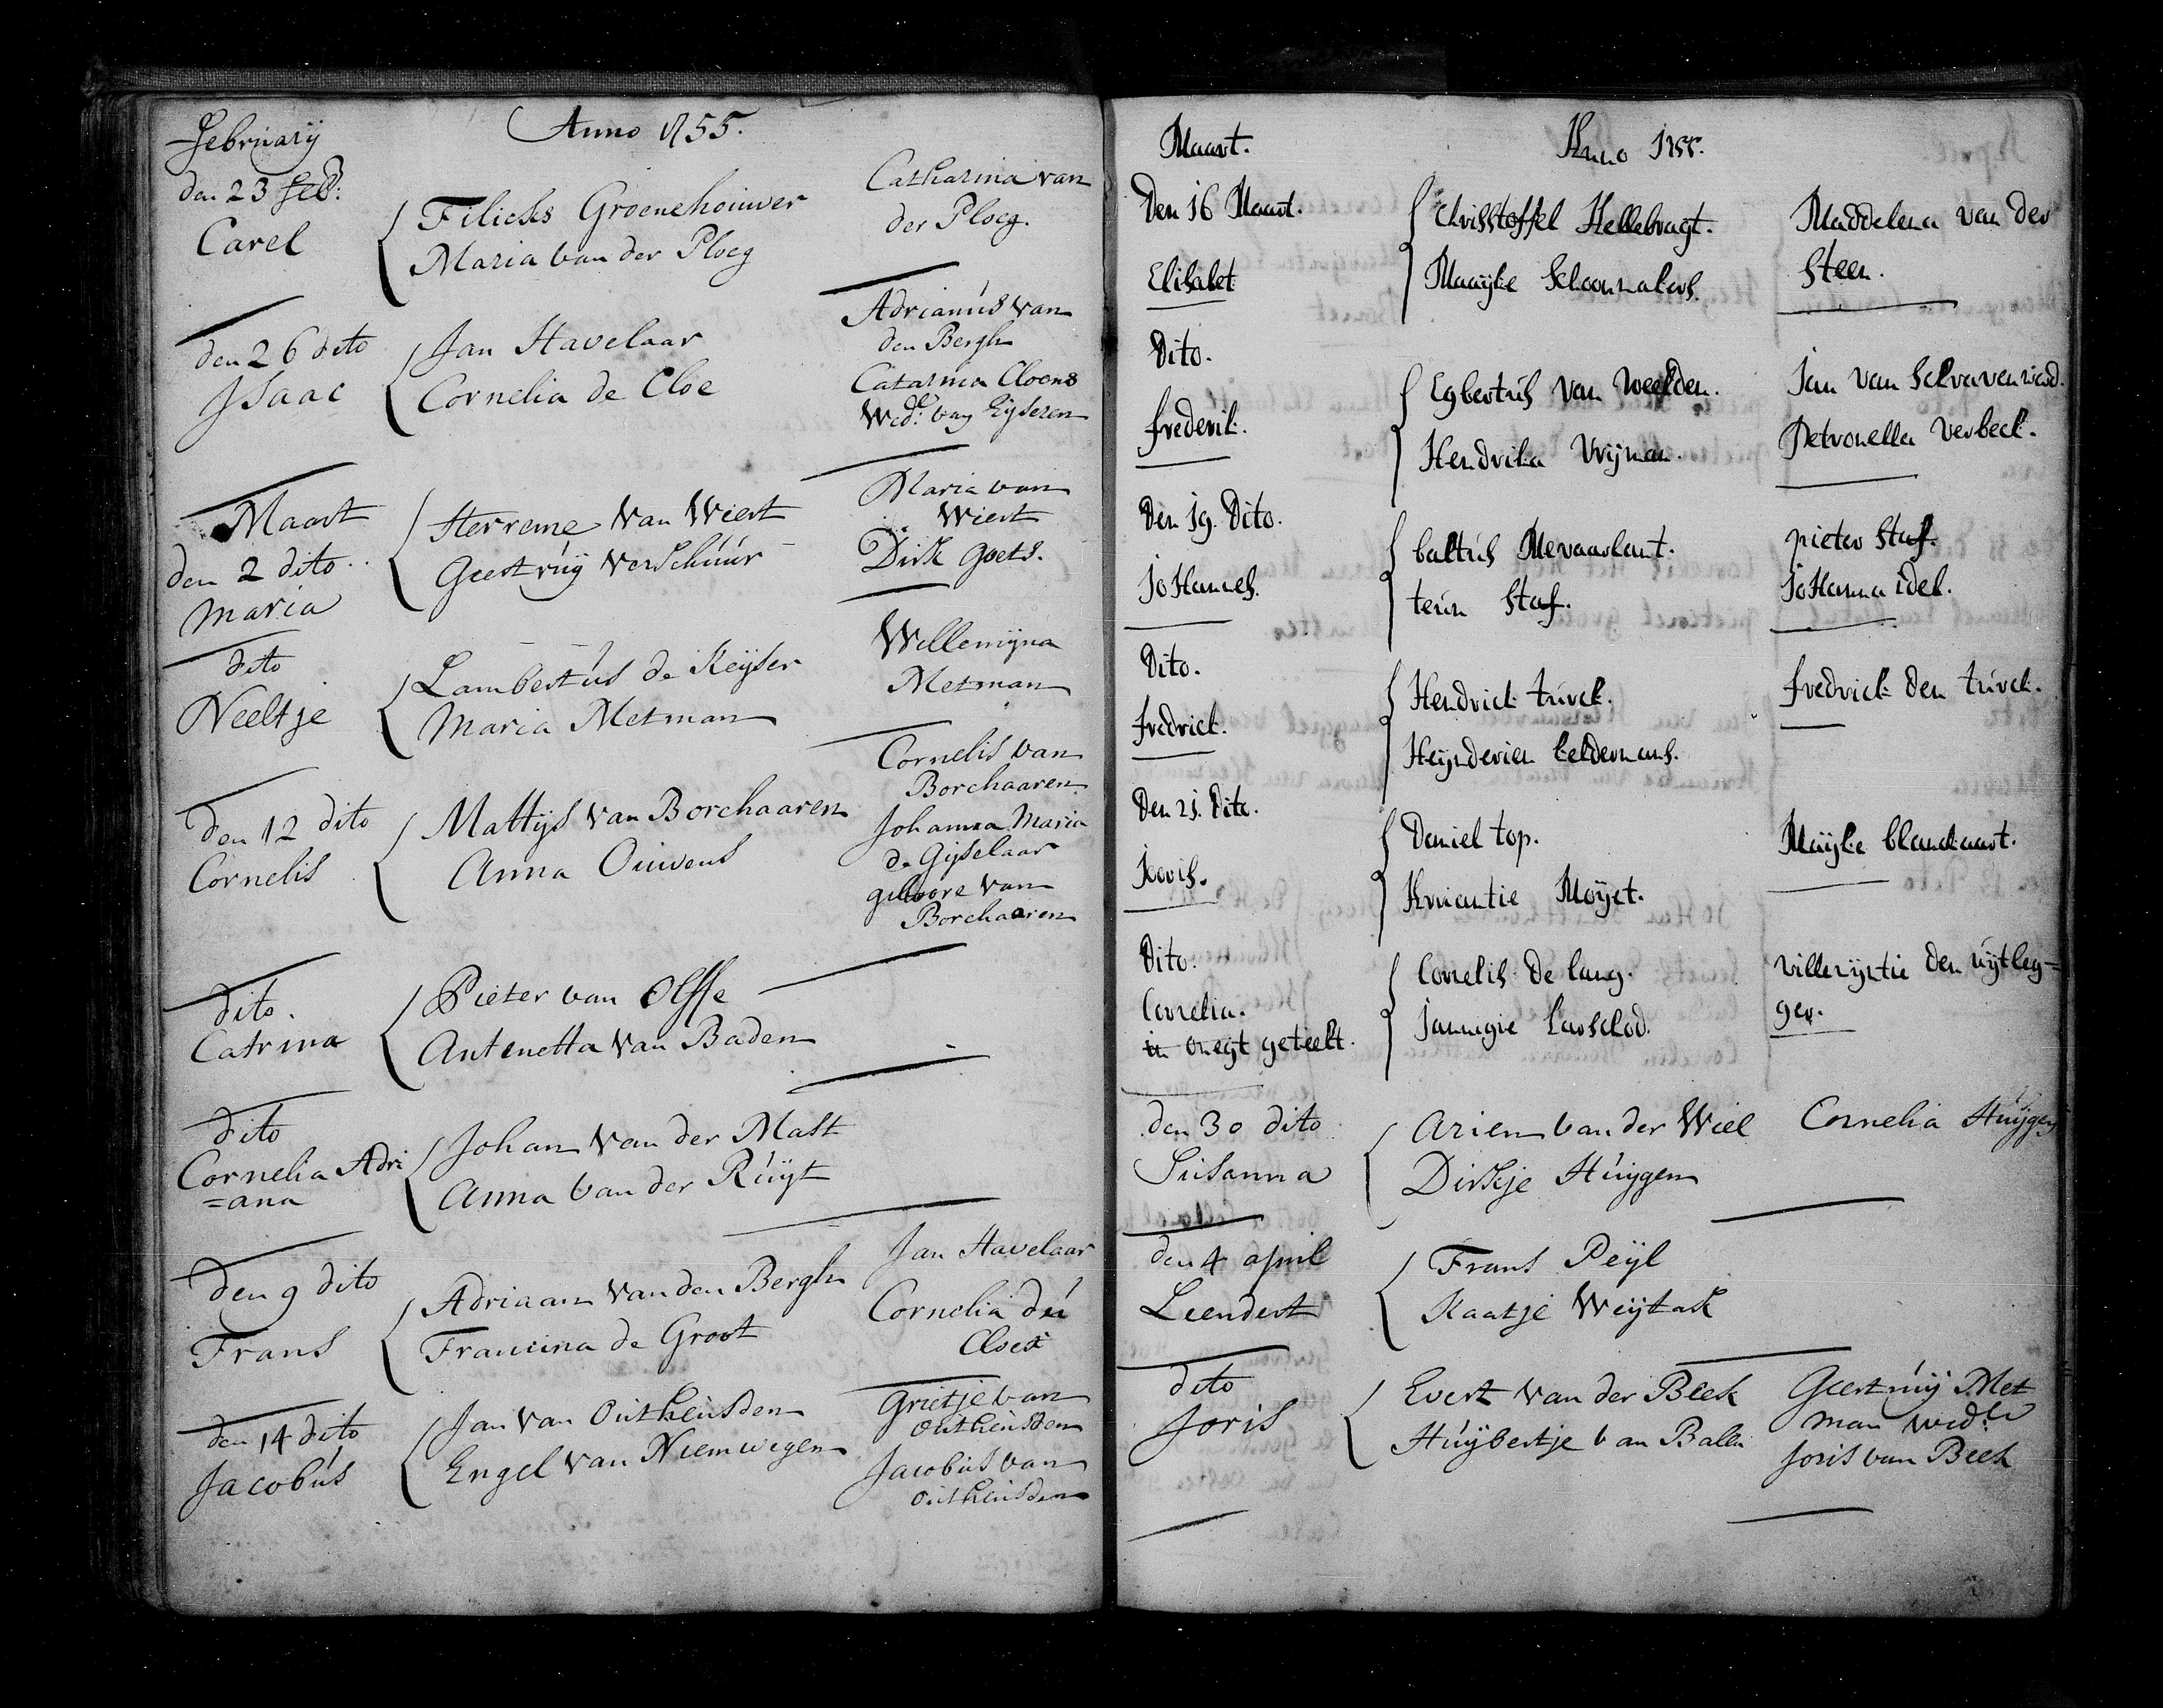 February
Anno 1755.
den 23 feb:
Carel
Filicks Groenehouwer
Maria van der Ploeg
Catharina van
der Ploeg.
den 26 dito
Isaac
Jan Havelaar
Cornelia de Cloe
Adrianús van
den Bergh
Catarina Cloens
Wed.e van Eyseren
Maart
den 2 dito
Maria
Herreme van Wiert
Geestrúÿ Verschúúr
Maria van
Wiert
Dirk Goets.
dito
Neeltje
Lambertús de Keyser
Maria Metman
Willemijna
Metman
den 12 dito
Cornelis
Mattys van Borchaaren
Anna Ouwens
Cornelis van
Borchaaren
Johanna Maria
de Gijselaar
geboore van
Borchaaren
dito.
Catrina
Pieter van Olffe
Antenetta van Baden
dito
Cornelia Adri
=ana
Johan van der Mast
Anna van der Rúÿt
den 9 dito
Frans
Adriaan van den Bergh
Francina de Groot
Jan Havelaar
Cornelia dú
Cloex
den 14 dito
Jacobús
Jan van Outheúsden
Engel van Niemwegen
Grietje van
Outheúsden
Jacobús van
Outheúsden
Maart.
Anno 1755.
Den 16 Maart.
Elisabet
Chrisstoffel Hellebragt.
Maaÿke Schoonnakers.
Maddelena van der
Steen.
Dito.
frederik.
Egbertús van Weelden.
Hendrika Vrijnan.
Jan van Schravenwerd.
Petronella Verbeek.
Den 19. Dito.
JoHannes.
baltús Mevaarlant.
teún Staf.
pieter Staf.
JoHanna idel.
Dito.
fredrick.
Hendrick túrck.
Heÿnderien keldermans.
fredrick den túrck.
Den 21. Dito.
Joovis.
Daniel top.
Ariaentie Moÿet.
Maÿke blanckaart.
Dito.
Cornelia.
in onegt geteelt.
Cornelis de lang.
Jannigie
villemÿntie den úÿtleg=
ger.
den 30 dito
Súsanna
Arien van der Wiel
Dirkje Húÿgen
Cornelia Húÿgen
den 4 april
Leendert
Frans Peÿl
Kaatje Weÿtak
dito
Joris
Evert van der Beek
Húÿbertje van Balen
Geertrúÿ Met
man wed.e
Joris van Beek